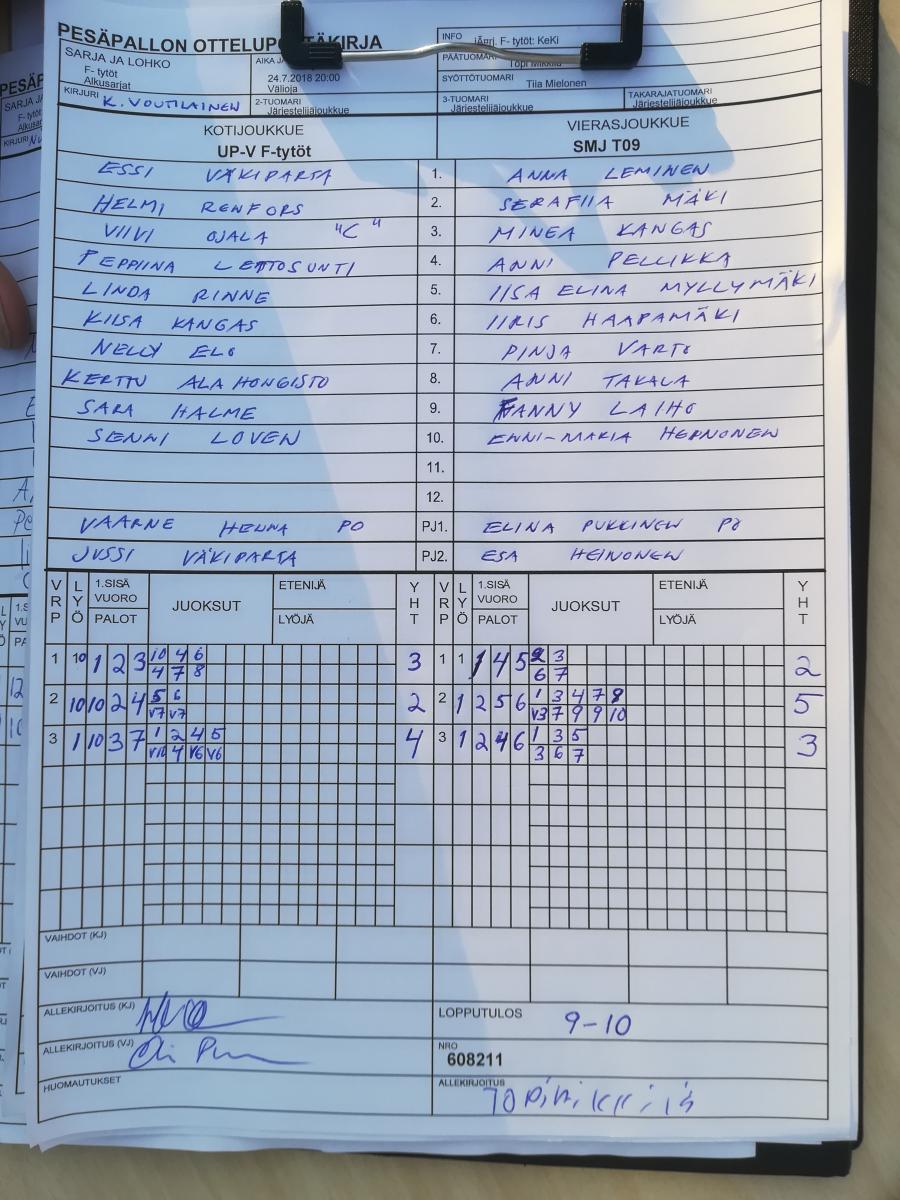 PESÄPALLON OTTELUPÖYTÄKIRJA
INFO järj. F- tytöt: KeKi
SARJA JA LOHKO
F- tytöt
Alkusarjat
AIKA JA
24.7.2018 20:00
Välioja
PÄÄTUOMARI
SYÖTTÖTUOMARI
Tiia Mielonen
KIRJURI K. VOUTILAINEN
2-TUOMARI
Järjestelijäjoukkue
3-TUOMARI
Järjestelijäjoukkue
TAKARAJATUOMARI
Järjestelijäjoukkue
KOTIJOUKKUE VIERASJOUKKUE
UP-V F-tytöt SMJ T09
ESSI VÄKIPARTA 1. ANNA LEMINEN
HELMI RENFORS 2. SERAFIIA MÄKI
VIIVI OJALA "C" 3. MINEA KANGAS
PEPPIINA 4. ANNI PELLIKKA
LINDA RINNE 5. IISA ELINA MYLLYMÄKI
KIISA KANGAS 6. IIRIS HAAPAMÄKI
NELLY ELO 7. PINJA VARTO
KERTTU ALAHONGISTO 8. ANNI TAKALA
SARA HALME 9. FANNY LAIHO
SENNI LOVEN 10. ENNI-MARIA
11.
12.
VAARNE HELINA PO PJ1. ELINA PUKKINEN PO
JUSSI VÄKIPARTA PJ2. ESA HEINONEN
VRP LYÖ 1.SISÄ VUORO PALOT JUOKSUT ETENIJÄ LYÖJÄ YHT VRP LYÖ 1.SISÄ VUORO PALOT JUOKSUT ETENIJÄ LYÖJÄ YHT
1 10 1 2 3 10 4 6 3 1 1 1 4 5 2 3 2
4 7 8 6 7
2 10 10 2 4 5 6 2 2 1 2 5 6 1 3 4 7 8 5
V7 V7 V3 7 9 9 10
3 1 10 3 7 1 2 4 5 4 3 1 2 4 6 1 3 5 3
V10 4 V6 V6 3 6 7
VAIHDOT (KJ)
VAIHDOT (VJ)
ALLEKIRJOITUS (KJ)
LOPPUTULOS 9-10
ALLEKIRJOITUS (VJ)
NRO
608211
HUOMAUTUKSET
ALLEKIRJOITUS